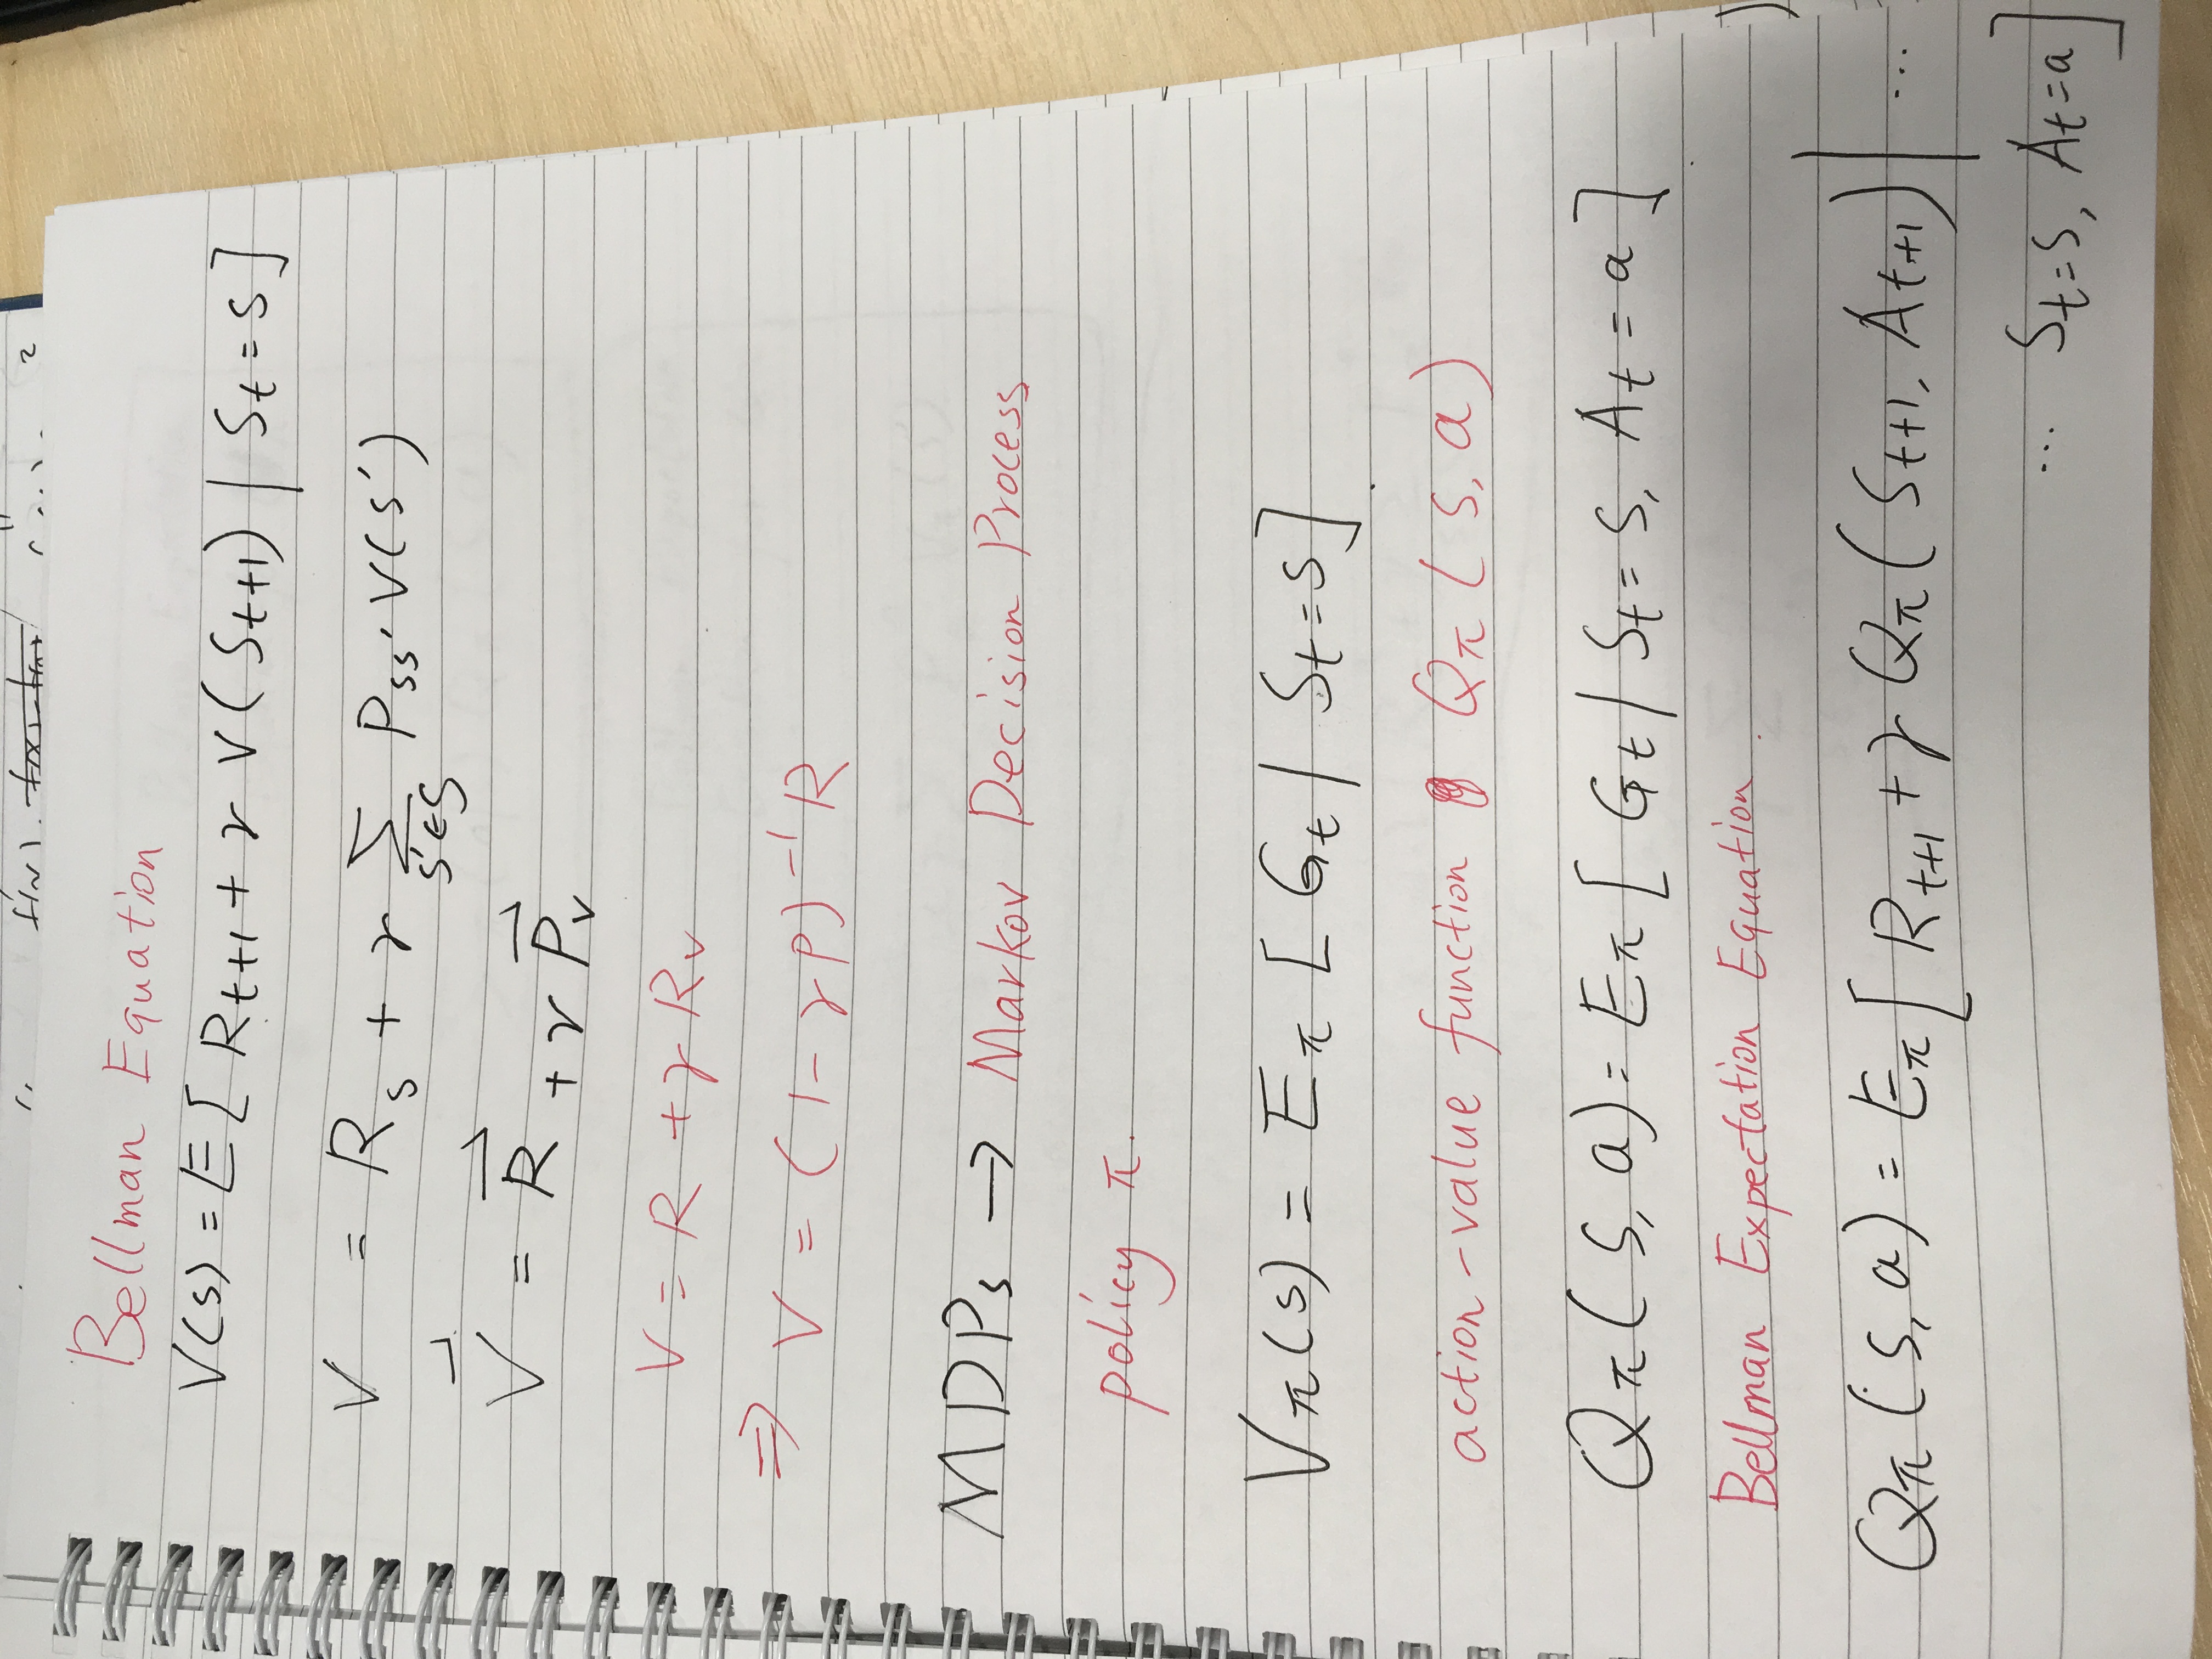 Bellman Equation
V(s) = E[ R_{t+1} + γ V(S_{t+1}) | S_t = s ]
V = R_s + γ Σ_{s'∈S} P_{ss'} V(s')
\vec{V} = \vec{R} + γ \vec{P}_v
V = R + γ R_v
⇒ V = (1 - γP)^{-1} R
MDPs → Markov Decision Process
policy π.
V_π(s) = E_π [ G_t | S_t = s ].
action-value function Q_π(s, a)
Q_π(s, a) = E_π [ G_t | S_t = s, A_t = a ].
Bellman Expectation Equation.
Q_π(s, a) = E_π [ R_{t+1} + γ Q_π(S_{t+1}, A_{t+1}) | ...
... S_t = s, A_t = a ]